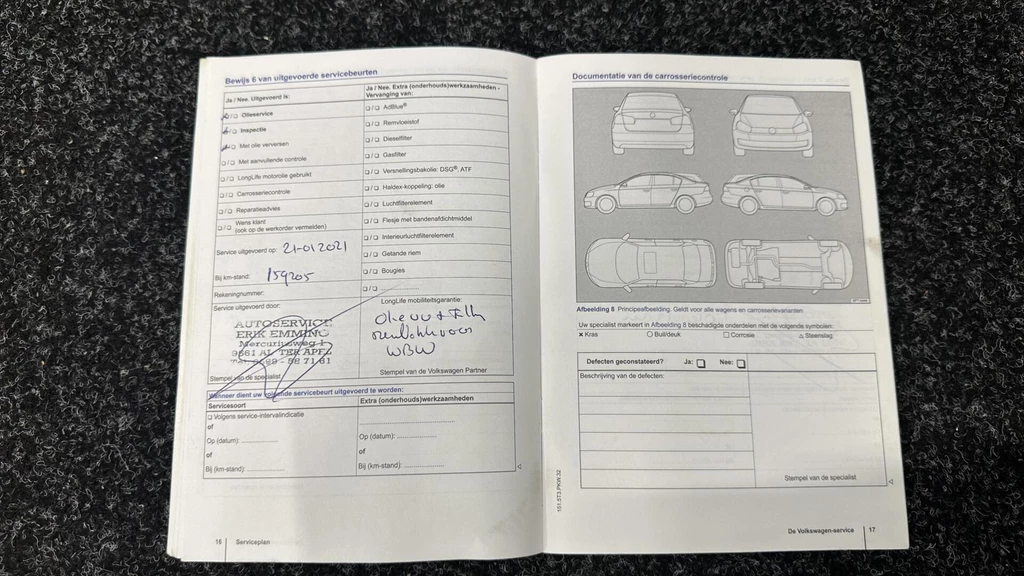 Bewijs 6 van uitgevoerde servicebeurten
Ja / Nee. Uitgevoerd is:
❏/❏ Olieservice
❏/❏ Inspectie
❏/❏ Met olie verversen
❏/❏ Met aanvullende controle
❏/❏ LongLife motorolie gebruikt
❏/❏ Carrosseriecontrole
❏/❏ Reparatieadvies
❏/❏ Wens klant
(ook op de werkorder vermelden)
Service uitgevoerd op: 21-01 2021
Bij km-stand: 159205
Rekeningnummer:
Service uitgevoerd door:
AUTOSERVICE
ERIK EMMING
Mercuriusweg 1
9561 AL TER APEL
Stempel van de specialist
Ja / Nee. Extra (onderhouds)werkzaamheden -
Vervanging van:
❏/❏ AdBlue®
❏/❏ Remvloeistof
❏/❏ Dieselfilter
❏/❏ Gasfilter
❏/❏ Versnellingsbakolie: DSG®, ATF
❏/❏ Haldex-koppeling: olie
❏/❏ Luchtfilterelement
❏/❏ Flesje met bandenafdichtmiddel
❏/❏ Interieurluchtfilterelement
❏/❏ Getande riem
❏/❏ Bougies
❏/❏
LongLife mobiliteitsgarantie:
WBW
Stempel van de Volkswagen Partner
Wanneer dient uw volgende servicebeurt uitgevoerd te worden:
Servicesoort
❏ Volgens service-intervalindicatie
of
Op (datum): ..............
of
Bij (km-stand): ..............
Extra (onderhouds)werkzaamheden
Op (datum): ..............
of
Bij (km-stand): ..............
16 Serviceplan
Documentatie van de carrosseriecontrole
Afbeelding 8 Principeafbeelding. Geldt voor alle wagens en carrosserievarianten
Uw specialist markeert in Afbeelding 8 beschadigde onderdelen met de volgende symbolen:
× Kras ○ Buil/deuk □ Corrosie △ Steenslag
Defecten geconstateerd? Ja: ❏ Nee: ❏
Beschrijving van de defecten:
Stempel van de specialist
151.5T3.PKW.32
De Volkswagen-service 17